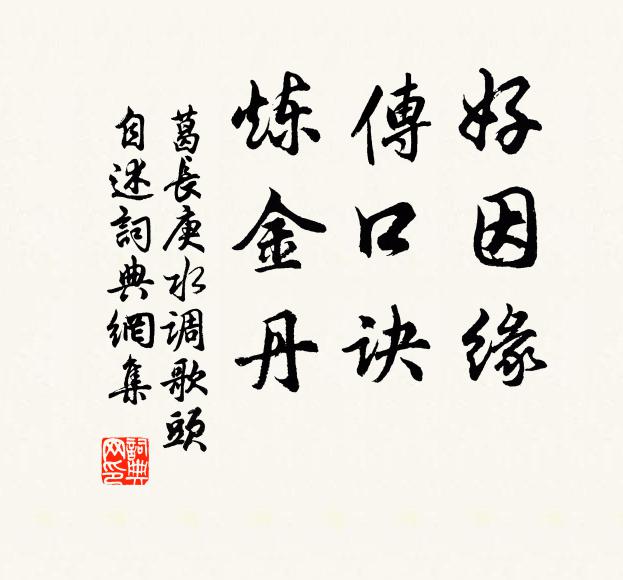 好因缘
傳口诀
炼金丹
葛長庚水调歌頭
自述詞典網集
詞典
网印